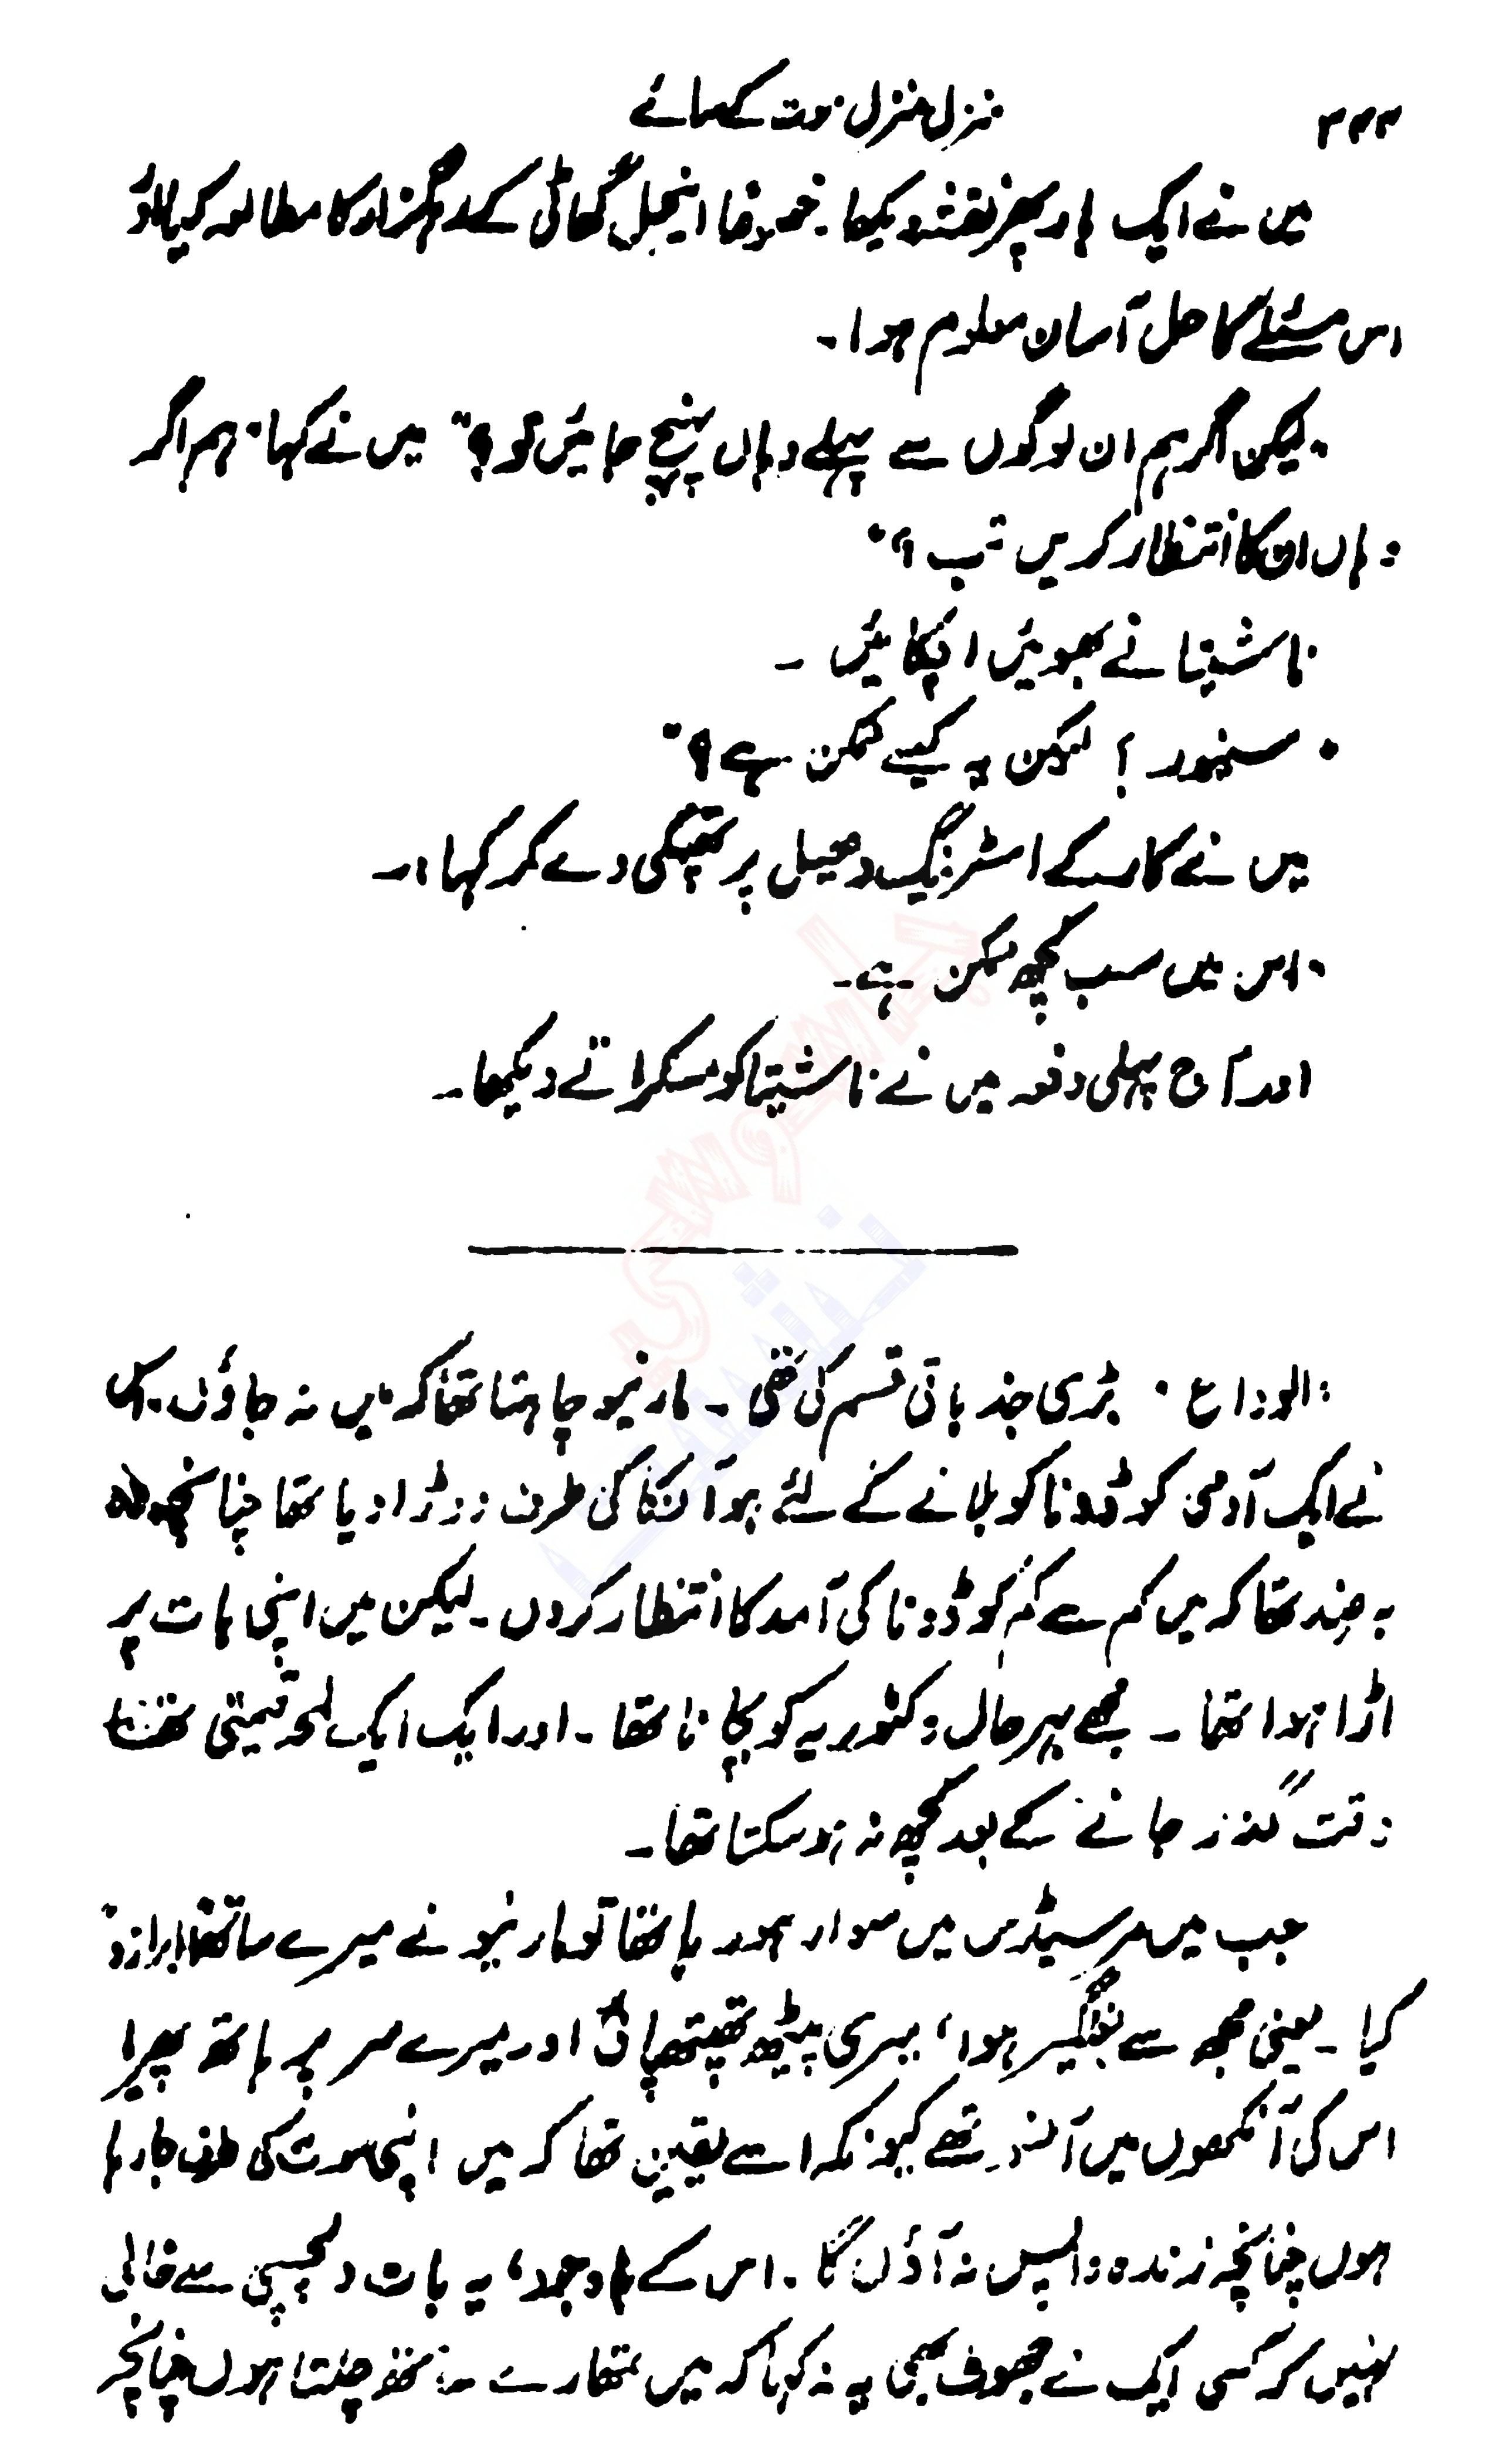 ۲۴۴ منزل منزل موت کے سائے
میں نے ایک بار پھر نقشہ دیکھا۔ خصوصاً اینجل گھاٹی کے مرغزار کا مطالعہ کیا تو
اس مسئلے کا حل آسان معلوم ہوا۔
"لیکن اگر ہم ان لوگوں سے پہلے وہاں پہنچ جائیں تو؟" میں نے کہا "ہم اگر
وہاں ان کا انتظار کریں تب؟"
ناشیتا نے بھویں اچکائیں ۔
"سینور؟ لیکن یہ کیسے ممکن ہے؟"
میں نے کار کے اسٹرنگ وھیل پر تھپکی دے کر کہا :۔
"اس میں سب کچھ ممکن ہے۔
اور آج پہلی دفعہ میں نے ناشیتا کو مسکراتے دیکھا۔
"الوداع" بڑی جذباتی قسم کی تھی ۔ مارنیو چاہتا تھا کہ میں نہ جاؤں۔ اس
نے ایک آدمی کو ڈونا کو بلانے کے لئے ہوآنکا کی طرف دوڑا دیا تھا چنانچہ وہ
بہ ضد تھا کہ میں کم سے کم کو ڈونا کی آمد کا انتظار کروں۔ لیکن میں اپنی بات پر
اڑا ہوا تھا ۔ مجھے بہر حال وکٹوریہ کو بچانا تھا ۔ اور ایک ایک لمحہ قیمتی تھا
وقت گذر جانے کے بعد کچھ نہ ہو سکتا تھا۔
جب میں مرسیڈس میں سوار ہو رہا تھا تو مارنیو نے میرے ساتھ ابرازو
کیا ۔ یعنی مجھ سے بغلگیر ہوا، میری پیٹھ تھپتھپائی اور میرے سر پر ہاتھ پھیرا
اس کی آنکھوں میں آنسو تھے کیونکہ اسے یقین تھا کہ میں اپنی موت کی طرف جا رہا
ہوں چنانچہ زندہ واپس نہ آؤں گا ۔ اس کے باوجود، یہ بات دلچسپی سے خالی
نہیں کہ کسی ایک نے جھوٹ بھی یہ نہ کہا کہ میں تمھارے ساتھ چلتا ہوں چنانچہ